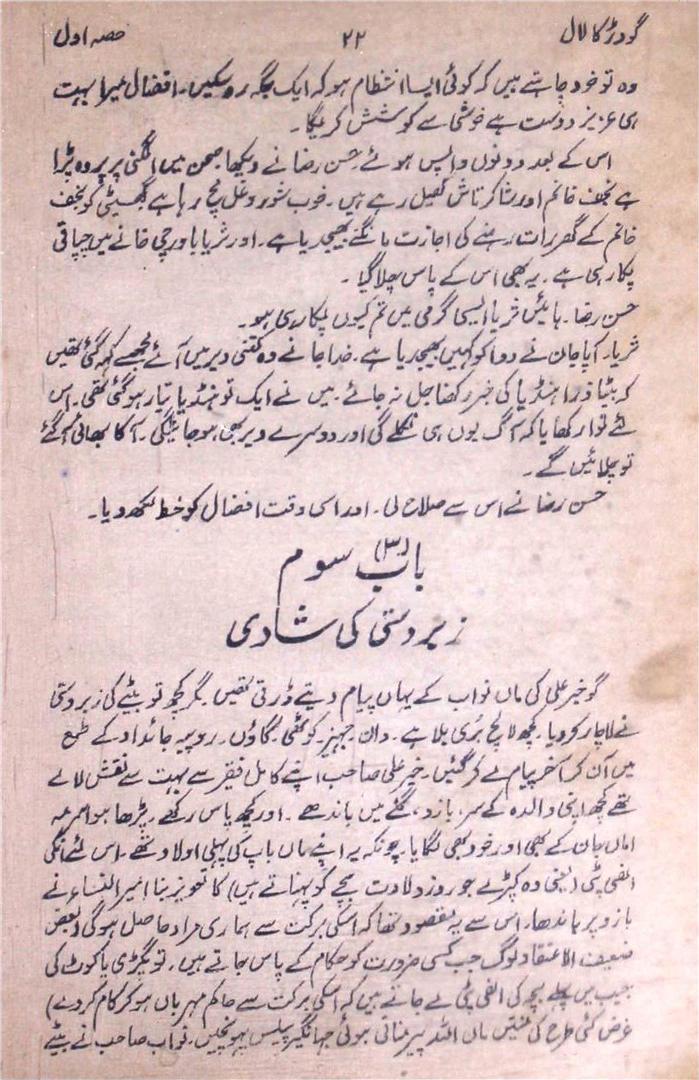 گودڑ کا لال ۲۲ حصہ اول
وہ تو خود چاہتے ہیں کہ کوئی ایسا انتظام ہو کہ ایک جگہ رہ سکیں۔ افضال میرا بہت
ہی عزیز دوست ہے خوشی سے کوشش کریگا۔
اس کے بعد دونوں واپس ہوئے حسن رضا نے دیکھا صحن میں انگنی پر پردہ پڑا
ہے نجف خانم اور رشا کر تاش کھیل رہے ہیں۔ خوب شور و غل مچ رہا ہے گھسیٹی کو نجف
خانم کے گھر رات رہنے کی اجازت مانگنے بھیجدیا ہے۔ اور ثریا باورچی خانے میں چپاتی
پکا رہی ہے۔ یہ بھی اس کے پاس چلا گیا۔
حسن رضا۔ ہائیں ثریا ایسی گرمی میں تم کیوں پکا رہی ہو۔
ثریا۔ آپا جان نے دوا کو کہیں بھیجدیا ہے۔ خدا جانے وہ کتنی دیر میں آئے مجھسے کہہ گئی تھیں
کہ بٹیا ذرا ہنڈیا کی خبر رکھنا جل نہ جائے۔ میں نے ایک تو ہنڈیا تیار ہو گئی تھی۔ اس
لئے توا رکھا یا کہ آگ یوں ہی نکلے گی اور دوسرے دیر بھی ہو جائیگی۔ آکا بھائی آ گئے
تو چلائیں گے۔
حسن رضا نے اس سے صلاح لی۔ اور اسی وقت افضال کو خط لکھ دیا۔
(۳)
باب سوم
زبردستی کی شادی
گو خیر علی کی ماں نواب کے یہاں پیام دیتے ڈرتی تھیں مگر کچھ تو بیٹے کی زبردستی
نے لاچار کر دیا۔ کچھ لالچ بری بلا ہے۔ دان جہیز۔ کوٹھی۔ گاؤں۔ روپیہ جائداد کے طمع
میں آن کر آخر پیام لے کر گئیں۔ خیر علی صاحب اپنے کامل فقیر سے بہت سے نقش لائے
تھے کچھ اپنی والدہ کے سر، بازو، گلے میں باندھے۔ اور کچھ پاس رکھے۔ پڑھا ہوا سرمہ
اماں جان کے بھی اور خود بھی لگایا۔ چونکہ یہ اپنے ماں باپ کی پہلی اولاد تھے۔ اس لئے انکی
الفی پٹی (یعنی وہ کپڑے جو روز ولادت بچے کو پہناتے ہیں) کا تعویز بنا امیر النساء نے
بازو پر باندھا۔ اس سے یہ مقصود تھا کہ اسکی برکت سے ہماری مراد حاصل ہوگی (بعض
ضعیف الاعتقاد لوگ جب کسی ضرورت کو حکام کے پاس جاتے ہیں۔ تو پگڑی یا کوٹ کی
جیب میں پہلے بچہ کی الفی پٹی لے جاتے ہیں کہ اسکی برکت سے حاکم مہرباں ہو کر کام کر دے)
غرض کئی طرح کی منتیں مان اللہ پیر مناتی ہوئی جہانگیر پیلیس پہونچیں۔ نواب صاحب نے بیٹے